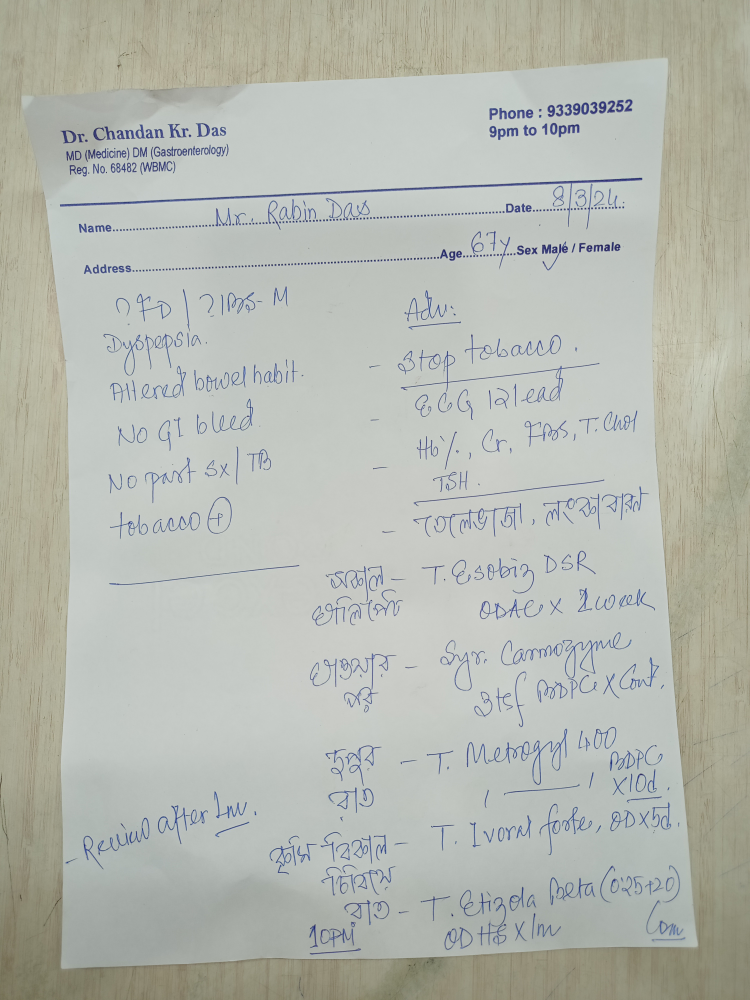 Dr. Chandan Kr. Das
MD (Medicine) DM (Gastroenterology)
Reg. No. 68482 (WBMC)
Phone : 9339039252
9pm to 10pm
Name Mr. Rabin Das Date 8/3/24
Address Age 67y Sex Male / Female
?FD / ?IBS-M
Dyspepsia.
Altered bowel habit.
No GI bleed
No past sx / TB
tobacco +
Adv:
- Stop tobacco.
- ECG 12 lead
- Hb%, Cr, FBS, T. Chol
TSH.
- তেলেভাজা, লংকা বারণ
সকাল - T. Esobiz DSR
খালি পেটে ODAC X 1 week
খাওয়ার - Syr. Carmozyme
পর 3tsf BDPC X Cont.
দুপুর - T. Metrogyl 400
রাত BDPC
X10d.
কৃমি বিকাল - T. Ivoral forte, OD X 5d.
চিবিয়ে
রাত - T. Etizola Beta (0.25+20)
10PM OD HS X 1m
- Review after 1m.